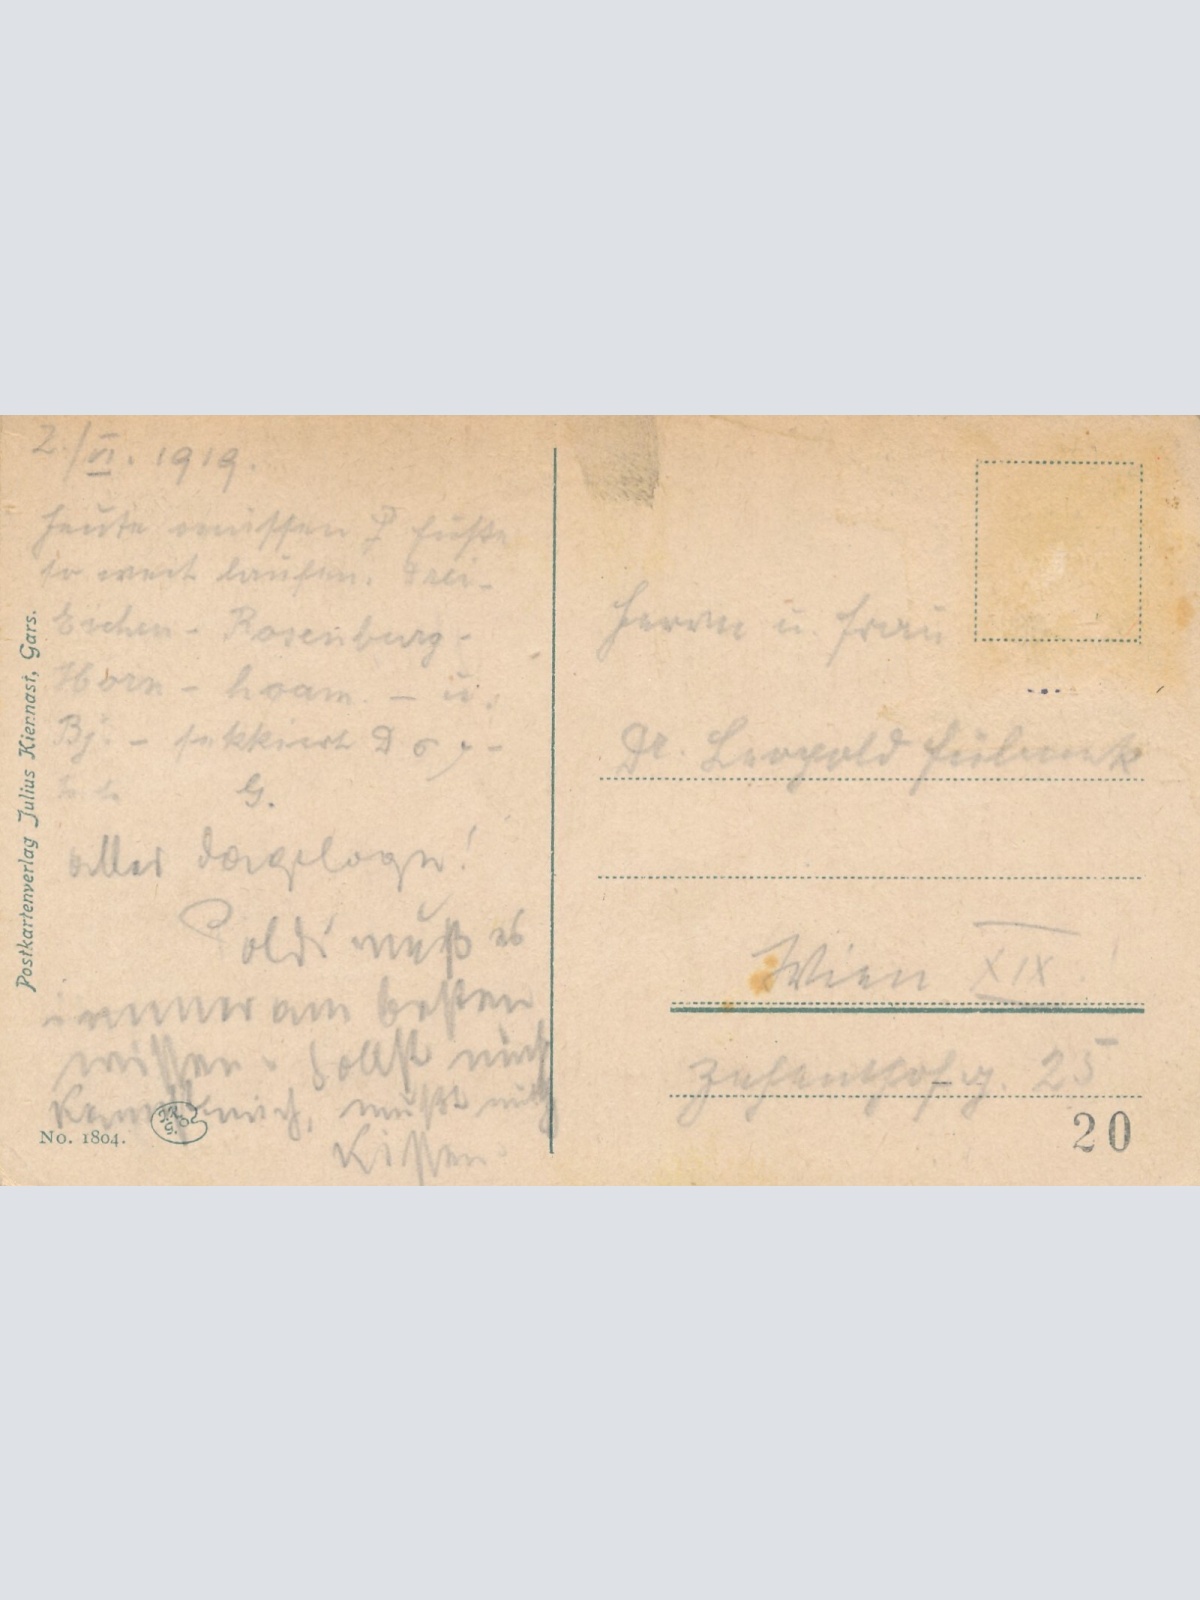 2./VI. 1919.
heute müssen Füße
so weit laufen. Drei-
Eichen - Rosenburg -
Horn - hoam - u.
Bj. - sekkiert
G.
alles
Poldi muß es
immer am besten
wissen. Sollst mich
mich, mußt mich
Küssen
Postkartenverlag Julius Kiennast, Gars.
No. 1804.
Herrn u. Frau
Dr. Leopold
Wien XIX
25
20